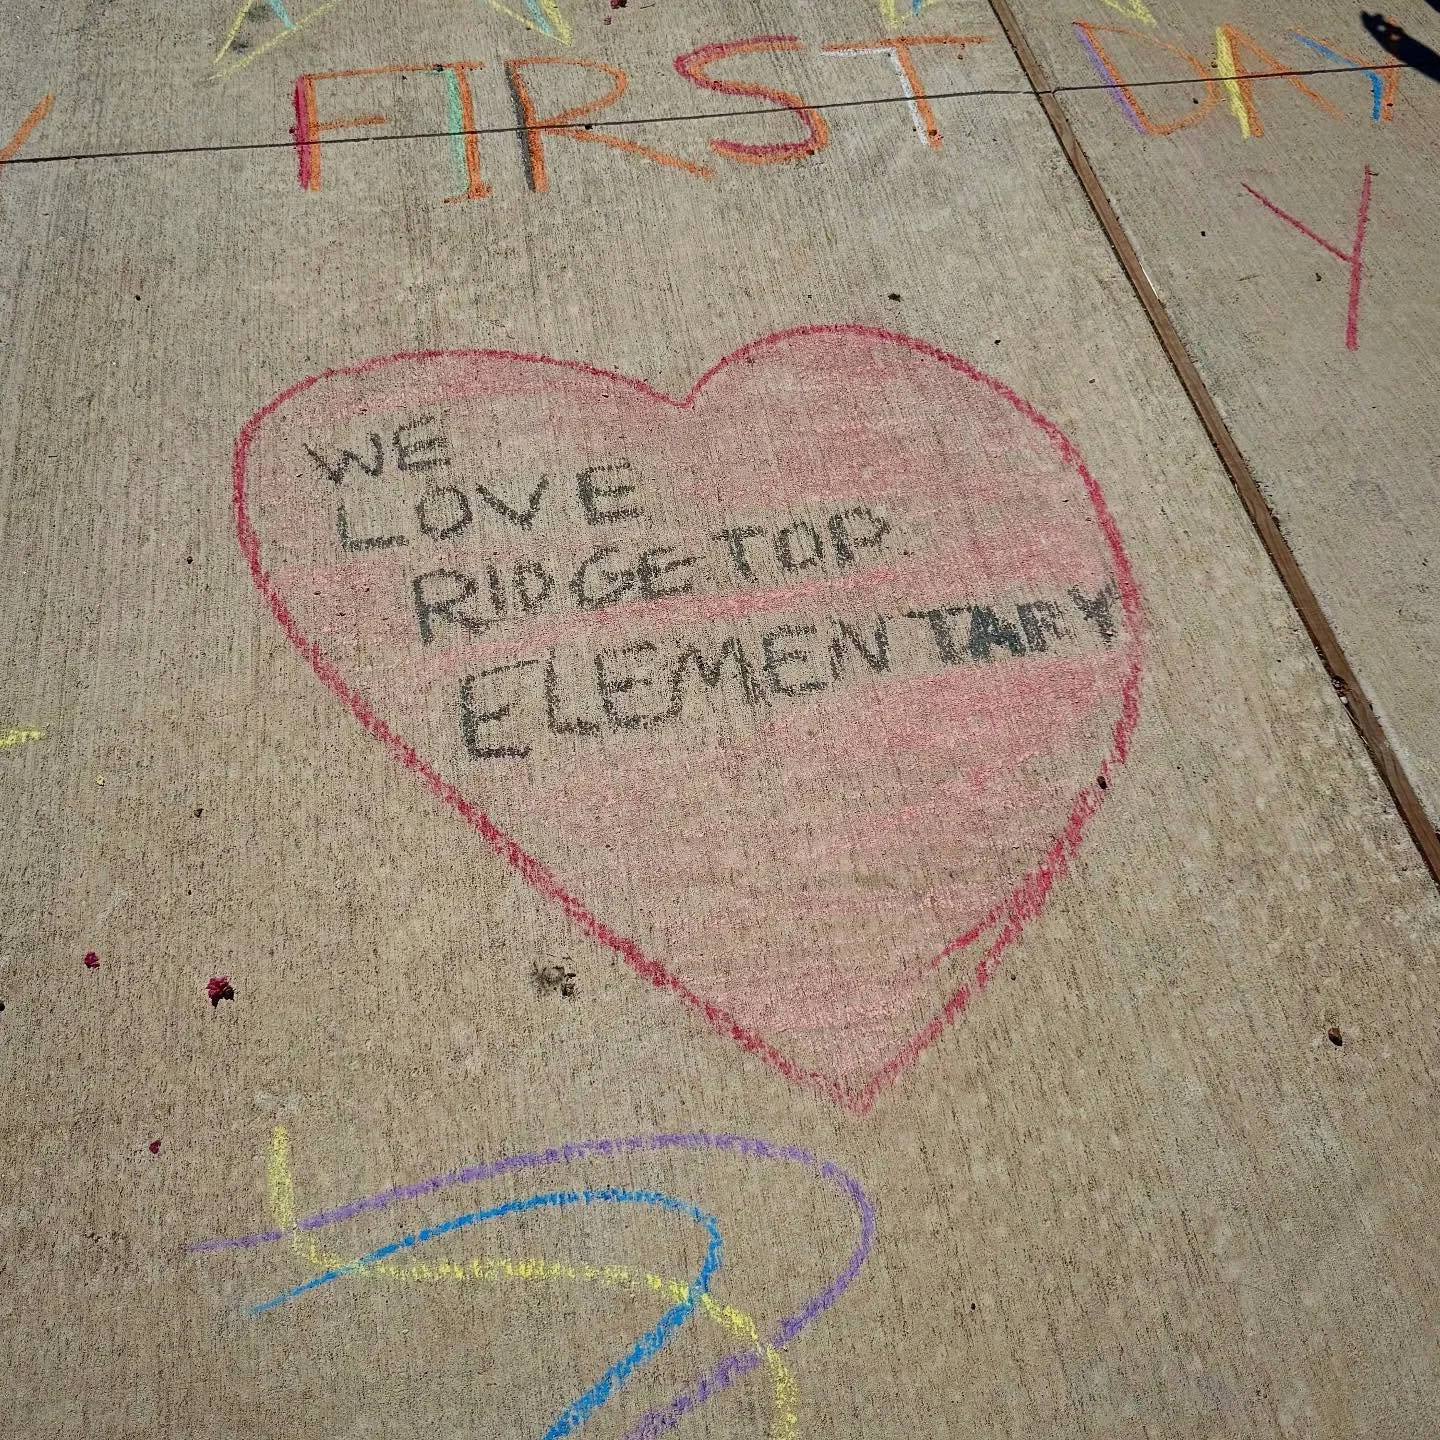 Y FIRST DAY
Y
WE
LOVE
RIDGETOP
ELEMENTARY